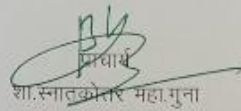 प्राचार्य
शा.स्नातकोत्तर महा.गुना